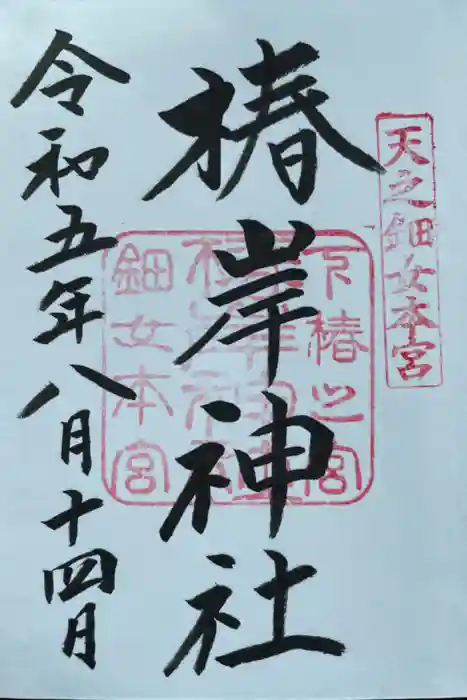 天之鈿女本宮
椿岸神社
下椿之宮
鈿女本宮
令和五年八月十四月